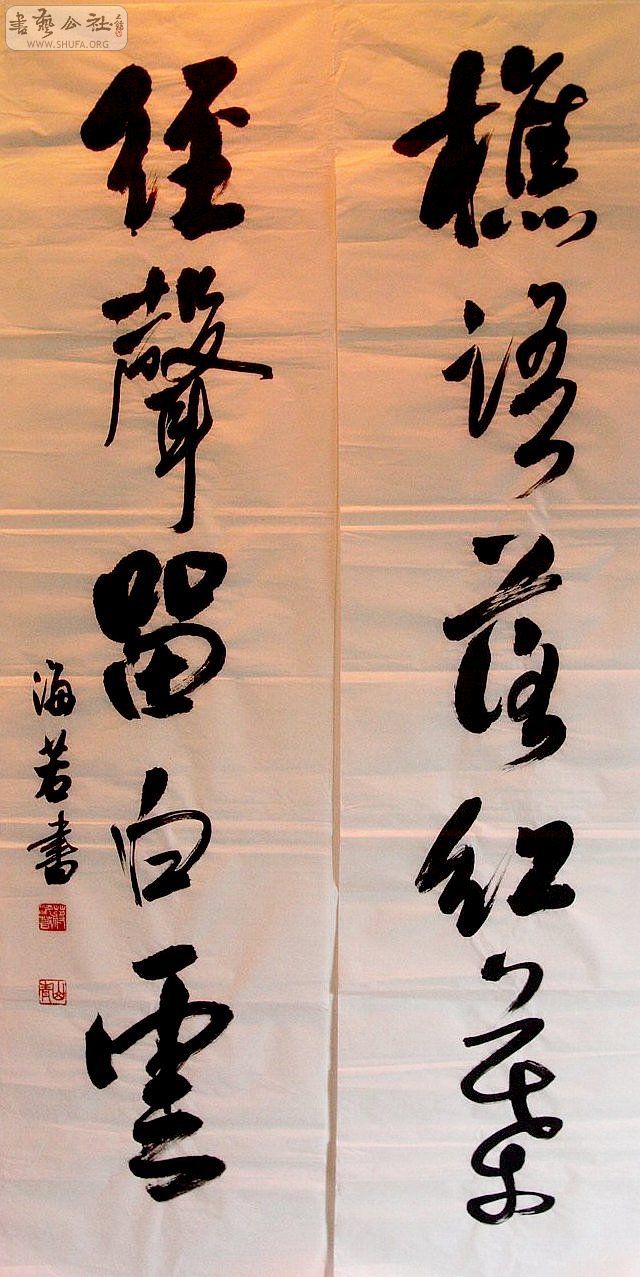 樵語落紅葉
經聲留白雲
海若書
書藝公社
WWW.SHUFA.ORG